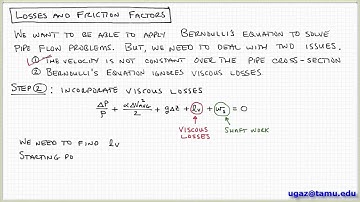 LOSSES AND FRICTION FACTORS
WE WANT TO BE ABLE TO APPLY BERNOULLI'S EQUATION TO SOLVE
PIPE FLOW PROBLEMS. BUT, WE NEED TO DEAL WITH TWO ISSUES.
① THE VELOCITY IS NOT CONSTANT OVER THE PIPE CROSS-SECTION
② BERNOULLI'S EQUATION IGNORES VISCOUS LOSSES
STEP ②: INCORPORATE VISCOUS LOSSES
ΔP/ρ + αΔV²avg/2 + gΔz + lv + ws = 0
VISCOUS LOSSES
SHAFT WORK
WE NEED TO FIND lv
STARTING PO
ugaz@tamu.edu